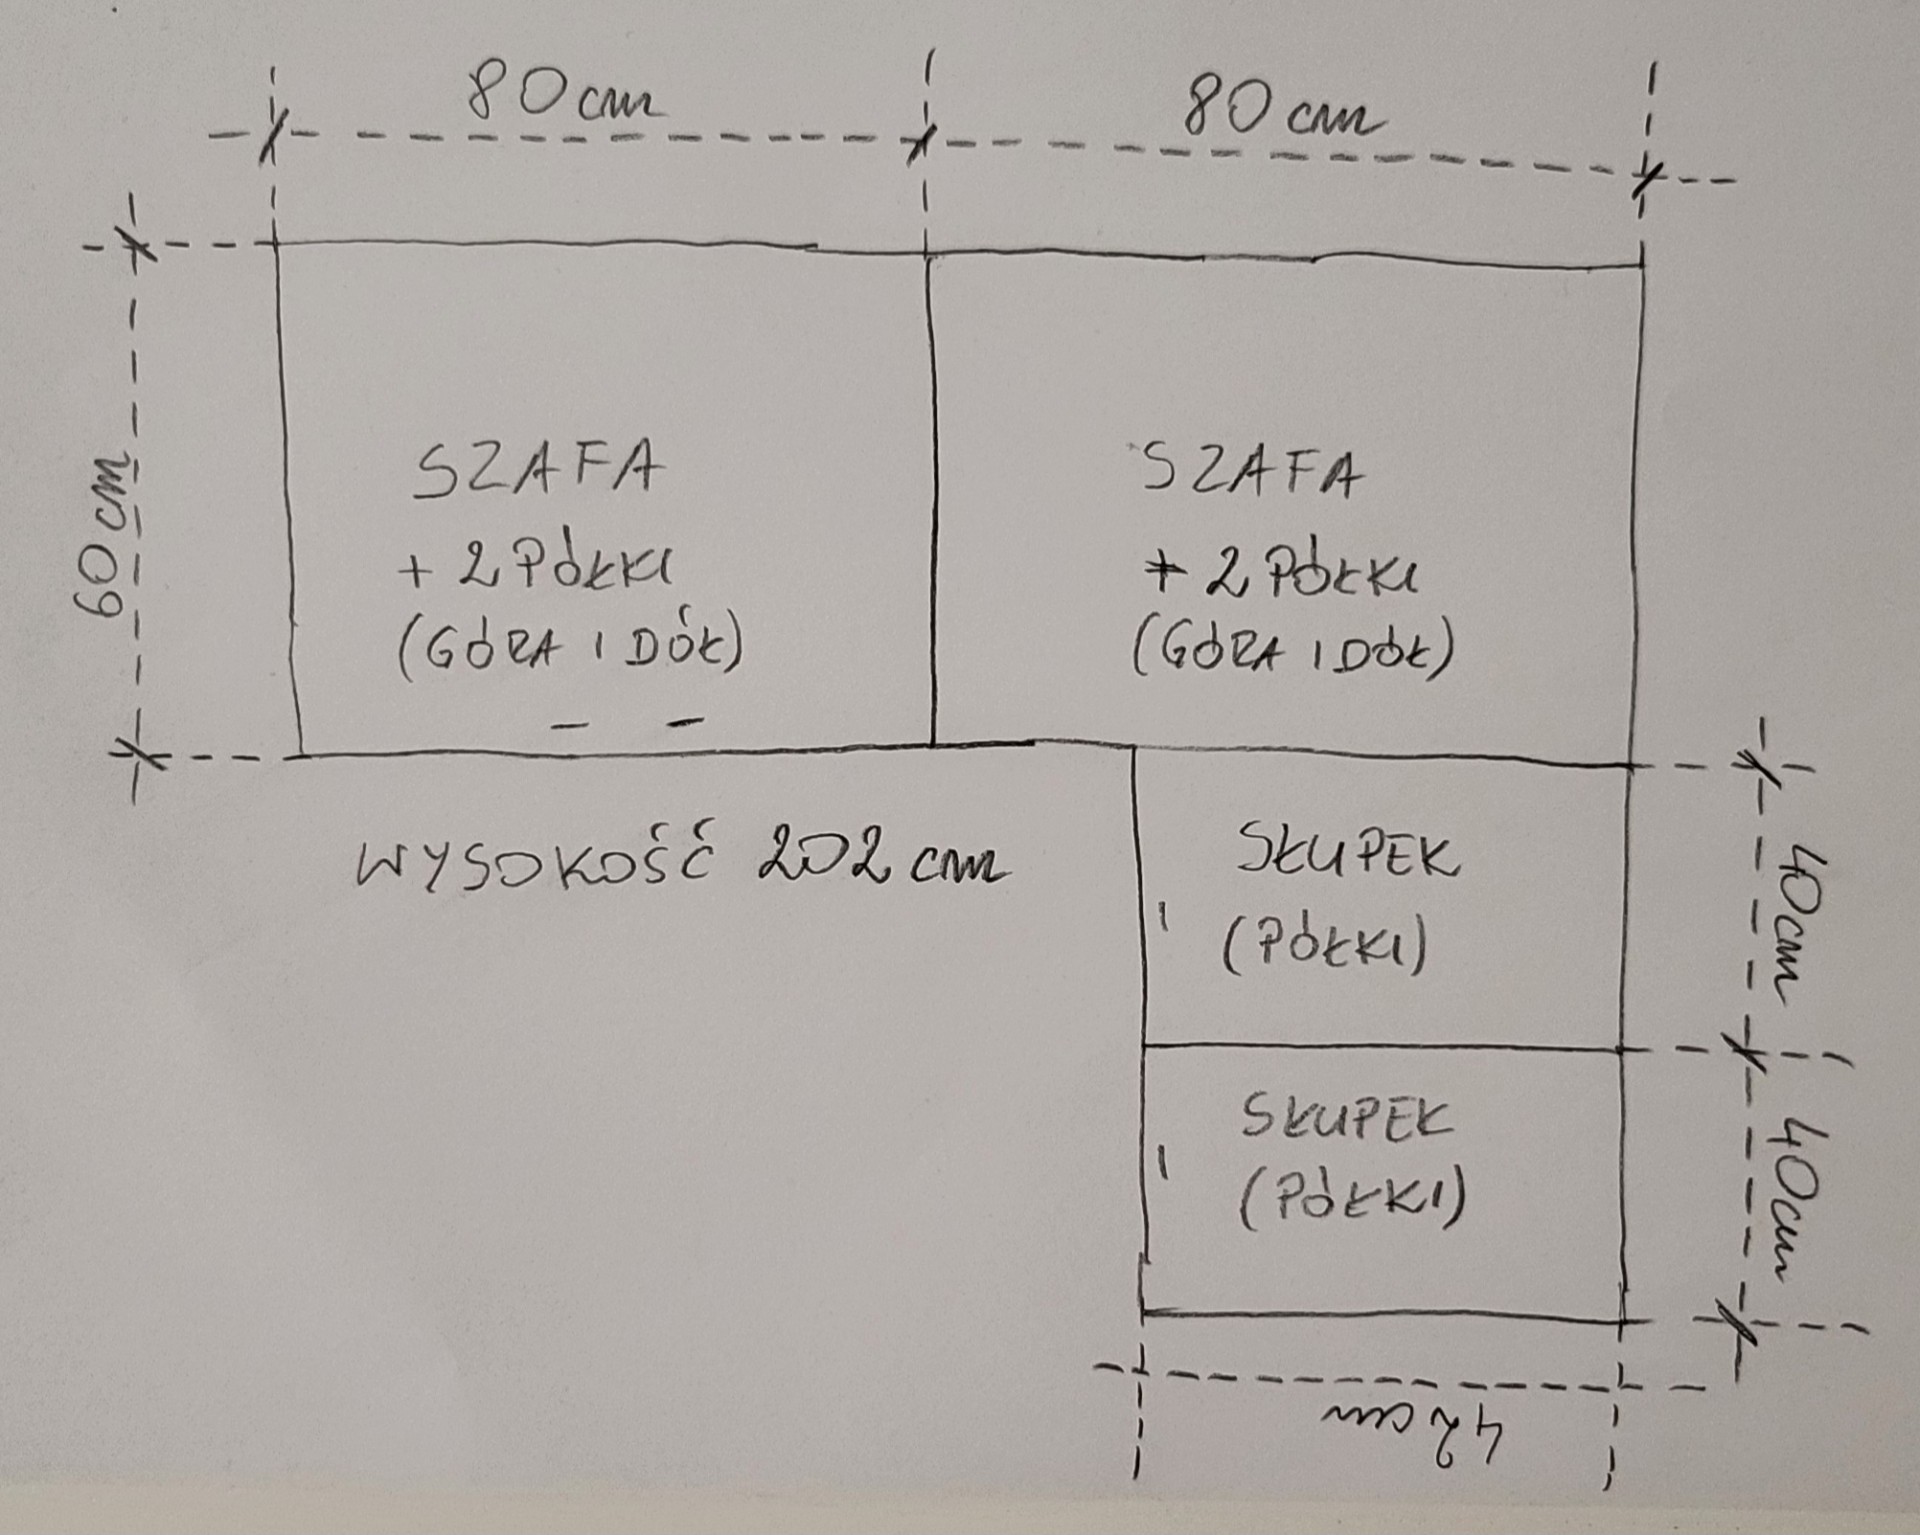 80 cm
80 cm
60 cm
SZAFA
+ 2 PÓŁKI
(GÓRA I DÓŁ)
SZAFA
+ 2 PÓŁKI
(GÓRA I DÓŁ)
WYSOKOŚĆ 202 cm
SŁUPEK
(PÓŁKI)
40 cm
SŁUPEK
(PÓŁKI)
40 cm
42 cm